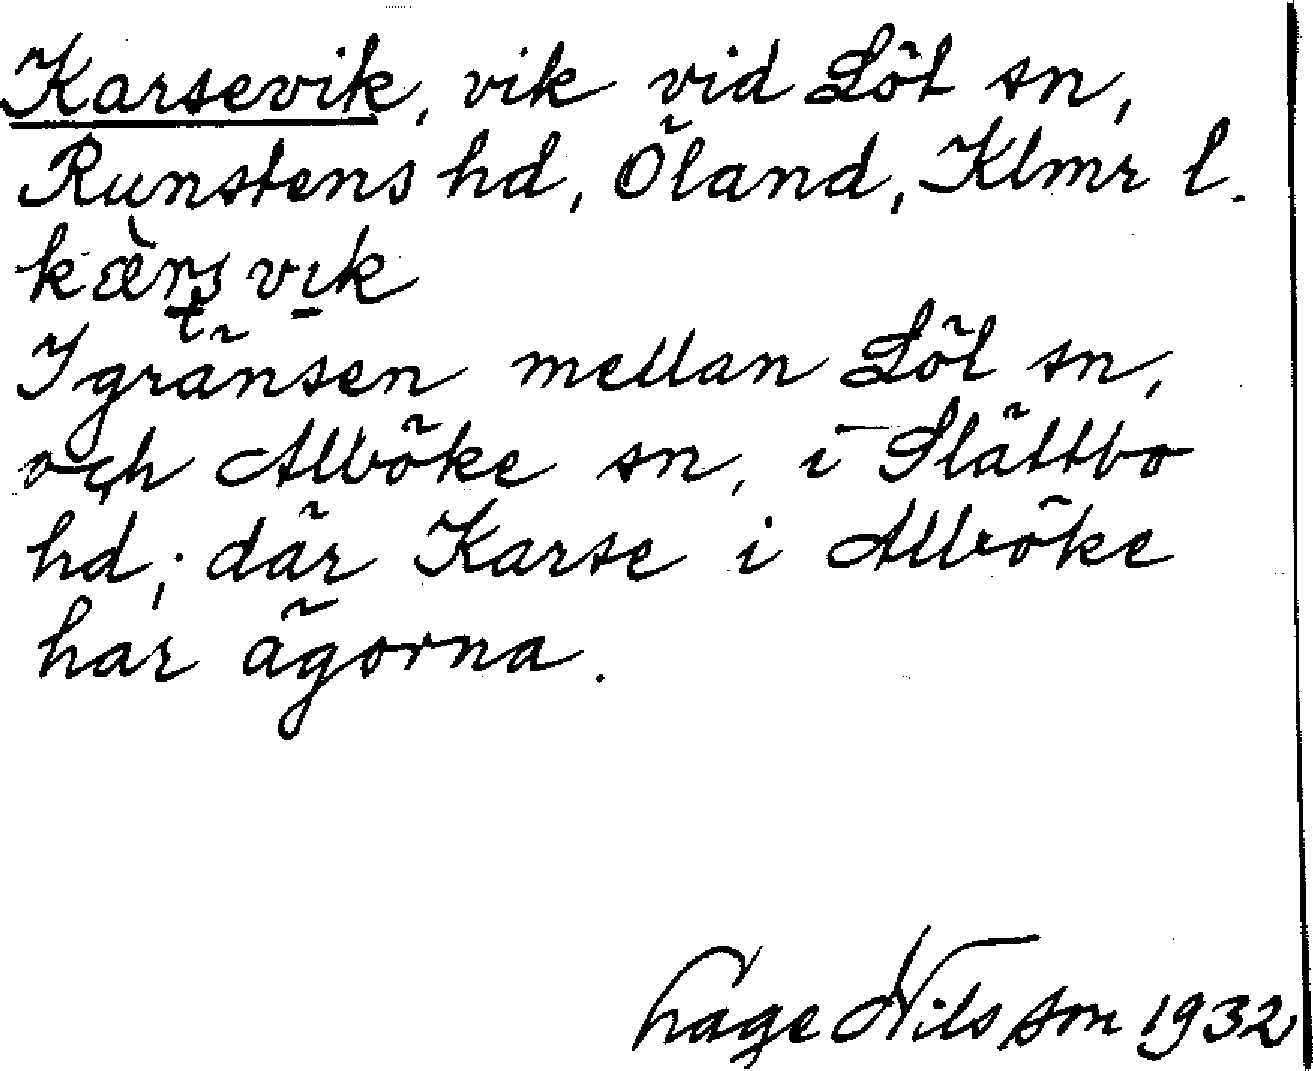 Karsevik, vik vid Löt sn,
Runstens hd, Öland, Klmr l.
kærsvik
I gränsen mellan Löt sn,
och Alböke sn, i Slättbo
hd, där Karse i Alböke
har ägorna.
Hage Nilsson 1932